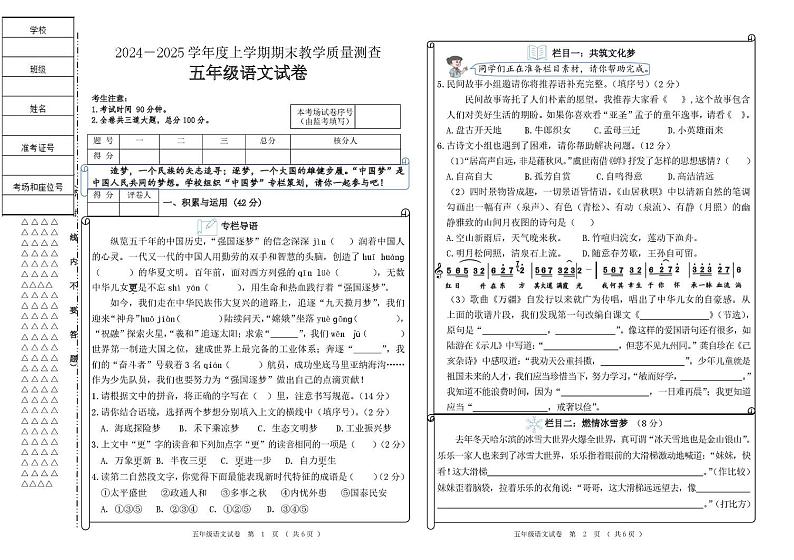 学校
班级
姓名
准考证号
考场和座位号
线
内
不
要
答
题
2024－2025学年度上学期期末教学质量测查
五年级语文试卷
考生注意：
1.考试时间 90分钟。
2.全卷共三道大题，总分100分。
本考场试卷序号
（由监考填写）
题 号 一 二 三 总分 核分人
得 分
追梦，一个民族的矢志追寻；逐梦，一个大国的雄健步履。“中国梦”是
中国人民共同的梦想。学校组织“中国梦”专栏策划，请你一起参与吧！
得 分 评卷人
一、积累与运用（42 分）
专栏导语
纵览五千年的中国历史，“强国逐梦”的信念深深 jìn（ ）润着中国人
的心灵。一代又一代的中国人用勤劳的双手和智慧的头脑，创造了 huī huáng
（ ）的华夏文明。百年前，面对西方列强的 qīn lüè（ ），无数
中华儿女更是不忘 shì yán（ ），用生命和热血践行着“强国逐梦”。
如今，我们走在中华民族伟大复兴的道路上，追逐“九天揽月梦”，我们
迎来“神舟”huǒ jiàn（ ）陆续问天，“嫦娥”坐落 yuè gōng（ ），
“祝融”探索火星，“羲和”追逐太阳；求索“______”，我们 wěn jù（ ）
世界第一制造大国之位，建成世界上最完备的工业体系；奔逐“______”，我
们的“奋斗者”号载着 3 名 qián（ ）航员，成功坐底马里亚纳海沟……
作为少先队员，我们也要努力为“强国逐梦”做出自己的点滴贡献！
1.请根据文中的拼音，将正确的字写在（ ）里，注意书写规范。（14 分）
2.请你结合语境，选择两个梦想分别填入上文的横线中（填序号）。（2 分）
A. 海底探险梦 B. 禾下乘凉梦 C. 生态文明梦 D.工业振兴梦
3.上文中“更”字的读音和下列加点字“更”的读音相同的一项是（ ）（2 分）
A. 万象更新 B. 半夜三更 C. 更进一步 D. 自力更生
4.读第二自然段文字，你觉得下面最能表现新时代特征的成语是（ ）（2 分）
①太平盛世 ②政通人和 ③多事之秋 ④内忧外患 ⑤国泰民安
A. ①③⑤ B. ②③⑤ C. ①②④ D. ①②⑤
五年级语文试卷 第 1 页（ 共 6 页）
栏目一：共筑文化梦
同学们正在准备栏目素材，请你帮助完成。
5.民间故事小组邀请你将推荐语补充完整。（填序号）（2 分）
民间故事寄托了人们朴素的愿望。我推荐大家看《 》,这个故事包含
人们对美好生活的期盼。如果你喜欢看“亚圣”孟子的童年逸事，请看《 》。
A.盘古开天地 B.牛郎织女 C.孟母三迁 D.小英雄雨来
6.古诗文小组也遇到了困难，请你帮助解决问题。（12 分）
（1）“居高声自远，非是藉秋风。”虞世南借《蝉》抒发了怎样的思想感情？（ ）
A.自高自大 B.孤芳自赏 C.自鸣得意 D.高洁清远
（2）四时景物皆成趣，一切景语皆情语。《山居秋暝》中以清新自然的笔调
勾画出一幅有声（泉声）、有色（青松）、有动（泉流）、有静（月照）的幽
静雅致的山间月夜图的诗句是（ ）
A.空山新雨后，天气晚来秋。 B.竹喧归浣女，莲动下渔舟。
C.明月松间照，清泉石上流。 D.随意春芳歇，王孙自可留。
（3）歌曲《万疆》自发行以来就广为传唱，唱出了中华儿女的自豪感。从
上面的歌谱片段，我们发现第一句改编自课文《____________》（节选），
原句是“____________，____________”。像这样的爱国语句还有很多，如
陆游在《示儿》中写道：“____________，但悲不见九州同。”龚自珍在《己
亥杂诗》中感叹道：“我劝天公重抖擞，____________”。少年儿童就是
祖国未来的人才，我们应当珍惜当下，努力学习，“敏而好学，____________”
我知道不能浪费时间，因为“____________，一日难再晨”；我更知道
应当“____________，戒奢以俭”。
栏目二：燃情冰雪梦 （8 分）
去年冬天哈尔滨的冰雪大世界火爆全世界，真可谓“冰天雪地也是金山银山”。
乐乐一家人也来到了冰雪大世界，乐乐指着眼前的大滑梯激动地喊道：“妹妹，快
看！这大滑梯____________。”（作比较）
妹妹歪着脑袋，拉着乐乐的衣角说：“哥哥，这大滑梯远远望去，像____________
____________。”（打比方）
五年级语文试卷 第 2 页（ 共 6 页）